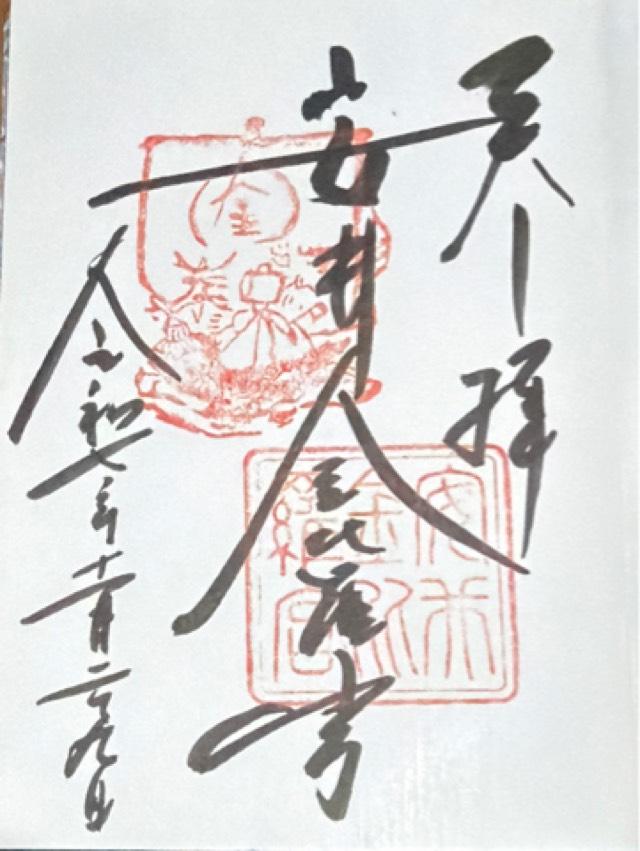 奉拝
安井金比羅宮
令和七年十一月二十九日
安井金比羅宮